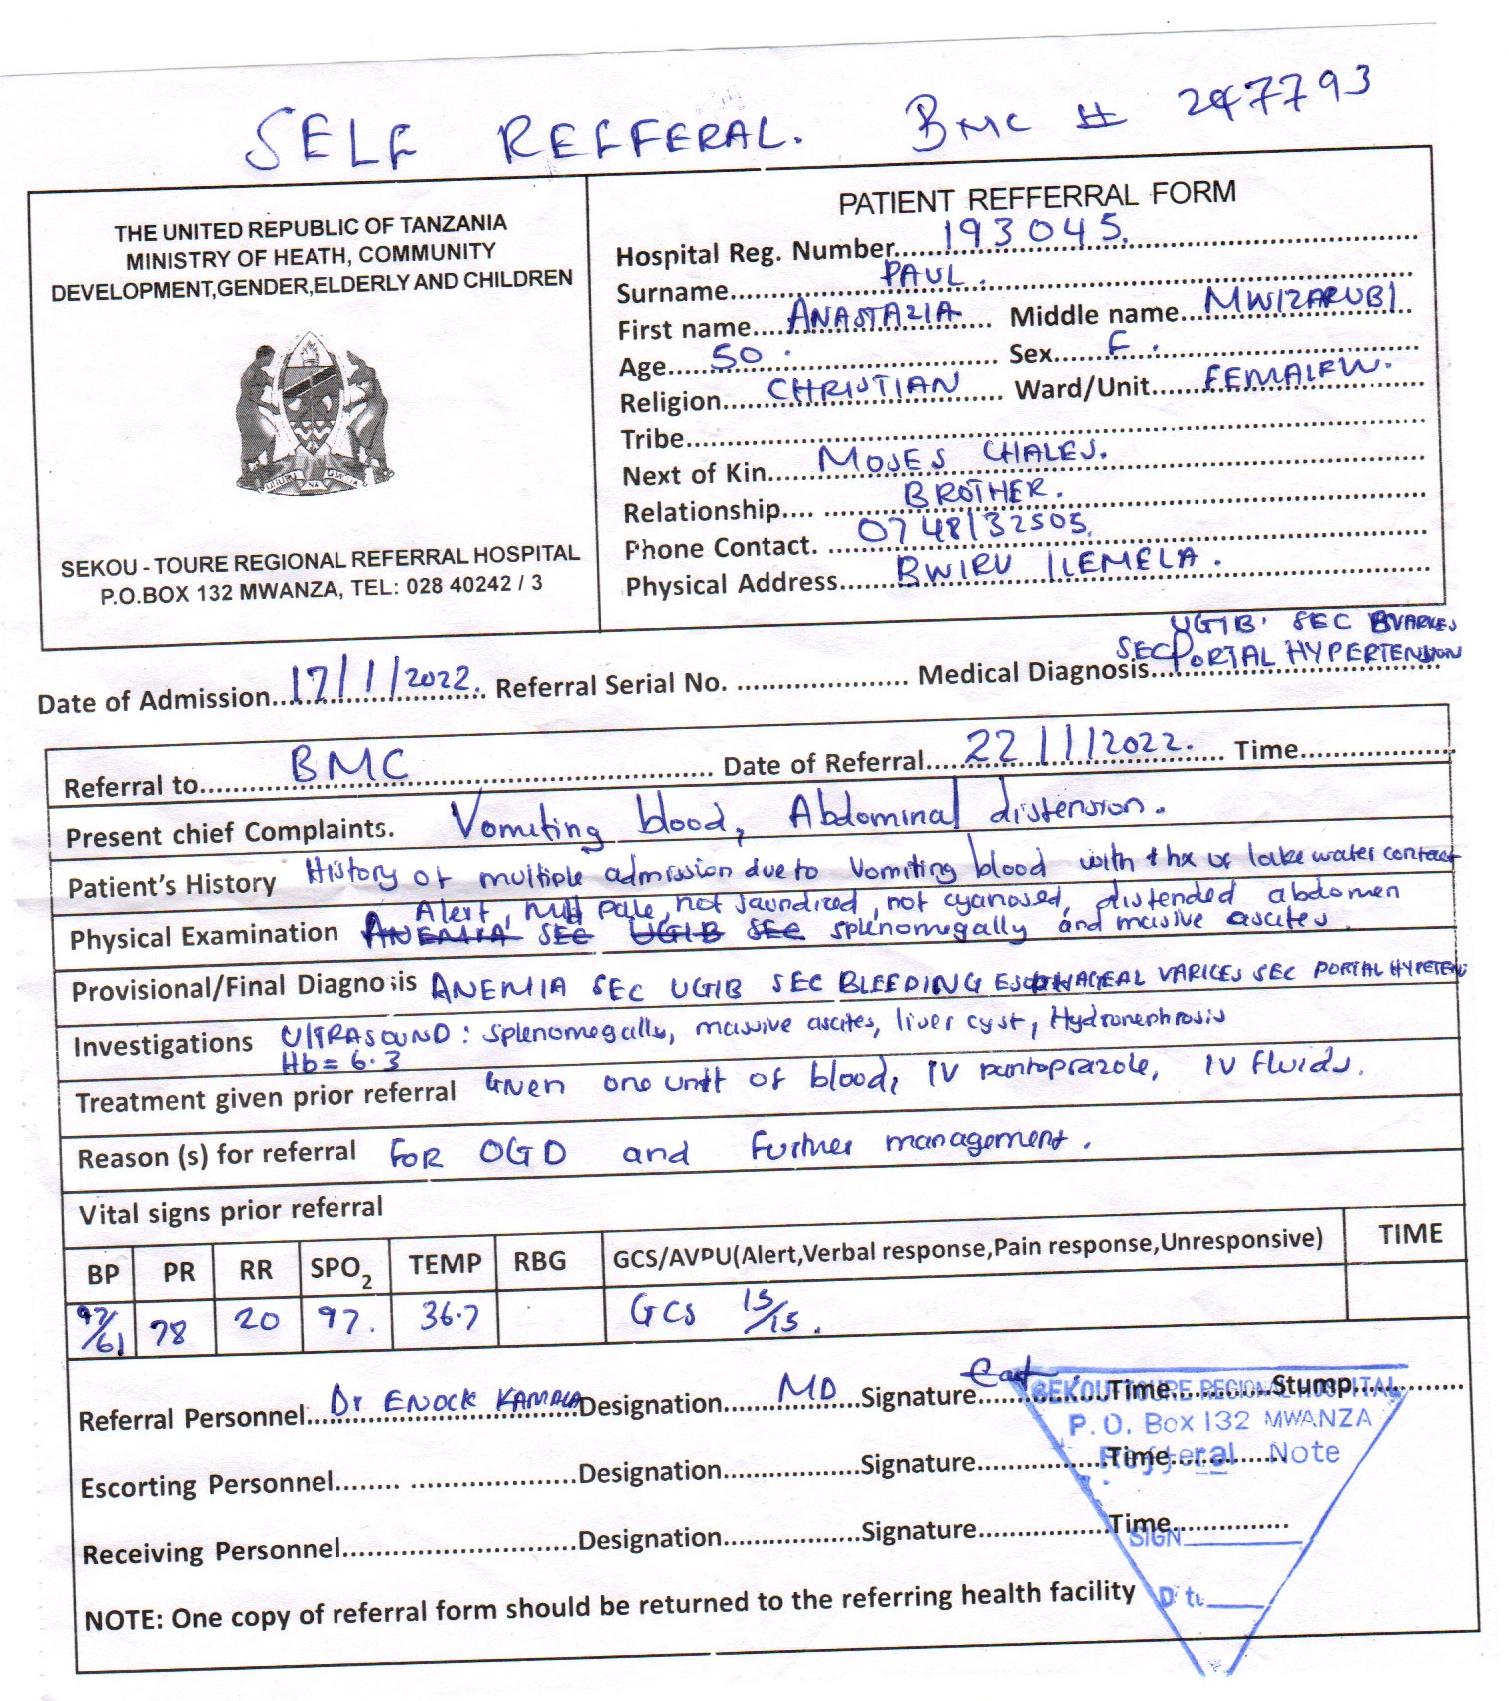 SELF REFFERAL. BMC # 247793
THE UNITED REPUBLIC OF TANZANIA
MINISTRY OF HEATH, COMMUNITY
DEVELOPMENT,GENDER,ELDERLY AND CHILDREN
SEKOU - TOURE REGIONAL REFERRAL HOSPITAL
P.O.BOX 132 MWANZA, TEL: 028 40242 / 3
PATIENT REFFERRAL FORM
Hospital Reg. Number 193045.
Surname PAUL.
First name ANASTAZIA Middle name MWIZARUBI
Age 50. Sex F.
Religion CHRISTIAN Ward/Unit
Tribe
Next of Kin MOSES CHALES.
Relationship BROTHER.
Phone Contact. 0748132505.
Physical Address BWIRU ILEMELA.
UGIB. SEC
Date of Admission 17/1/2022. Referral Serial No. Medical Diagnosis SEC PORTAL HYPERTENSION
Referral to BMC Date of Referral 22/1/2022. Time
Present chief Complaints. Vomiting blood, Abdominal distension.
Patient's History History of multiple admission due to vomiting blood with + hx of lake water contact
Alert, pale, not jaundiced, not cyanosed, distended abdomen
Physical Examination ANEMIA SEC UGIB SEC splenomegally and massive ascites.
Provisional/Final Diagnosis ANEMIA SEC UGIB SEC BLEEDING ESOPHAGEAL VARICES SEC PORTAL HYPETENI
Investigations ULTRASOUND: splenomegally, massive ascites, liver cyst, Hydronephrosis
Hb = 6.3
Treatment given prior referral Given one unit of blood, IV pantoprazole, IV fluids.
Reason (s) for referral FOR OGD and further management.
Vital signs prior referral
BP PR RR SPO2 TEMP RBG GCS/AVPU(Alert,Verbal response,Pain response,Unresponsive) TIME
97/61 78 20 97. 36.7 GCS 15/15.
Referral Personnel Dr ENOCK Designation MD Signature Time Stump
Escorting Personnel Designation Signature Time
Receiving Personnel Designation Signature Time
NOTE: One copy of referral form should be returned to the referring health facility
SEKOU TOURE REGIONAL HOSPITAL
P. O. Box 132 MWANZA
Refferal Note
SIGN